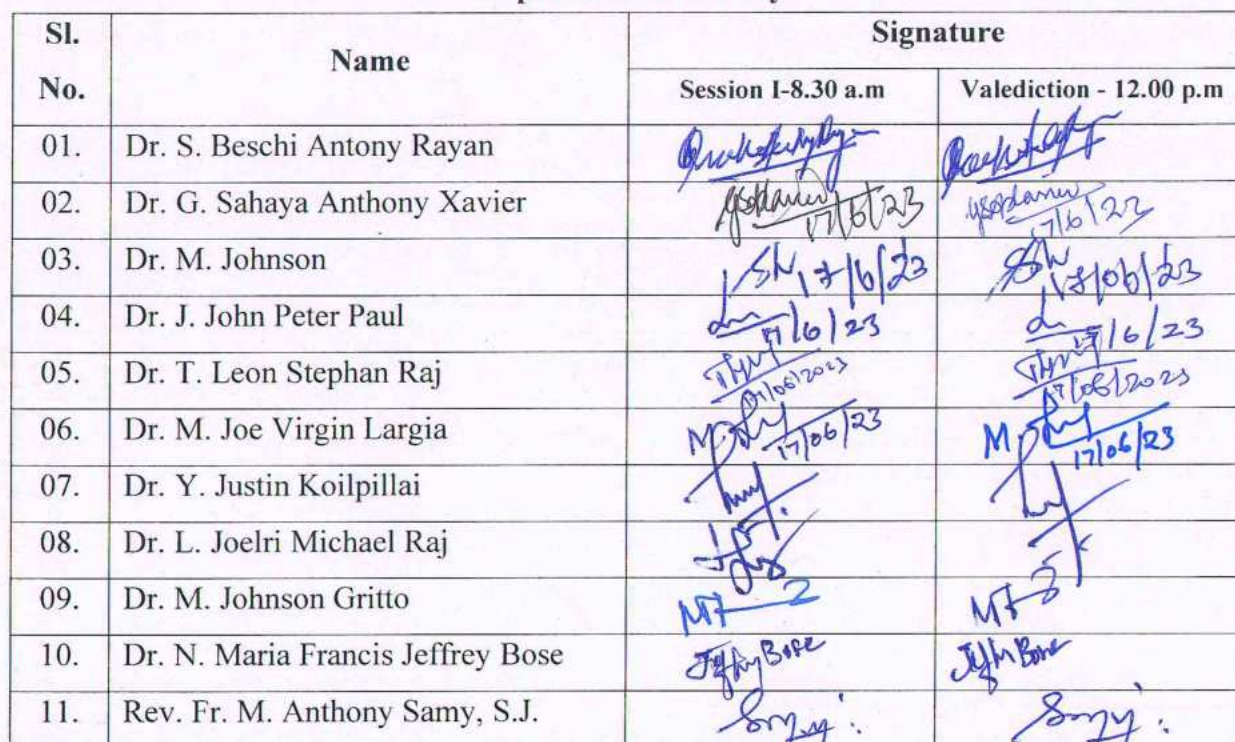 Sl. No. Name Signature
Session I-8.30 a.m Valediction - 12.00 p.m
01. Dr. S. Beschi Antony Rayan
02. Dr. G. Sahaya Anthony Xavier 17/6/23 17/6/23
03. Dr. M. Johnson 17/6/23 17/06/23
04. Dr. J. John Peter Paul 17/6/23 17/6/23
05. Dr. T. Leon Stephan Raj 17/06/2023 17/06/2023
06. Dr. M. Joe Virgin Largia 17/06/23 17/06/23
07. Dr. Y. Justin Koilpillai
08. Dr. L. Joelri Michael Raj
09. Dr. M. Johnson Gritto
10. Dr. N. Maria Francis Jeffrey Bose
11. Rev. Fr. M. Anthony Samy, S.J.